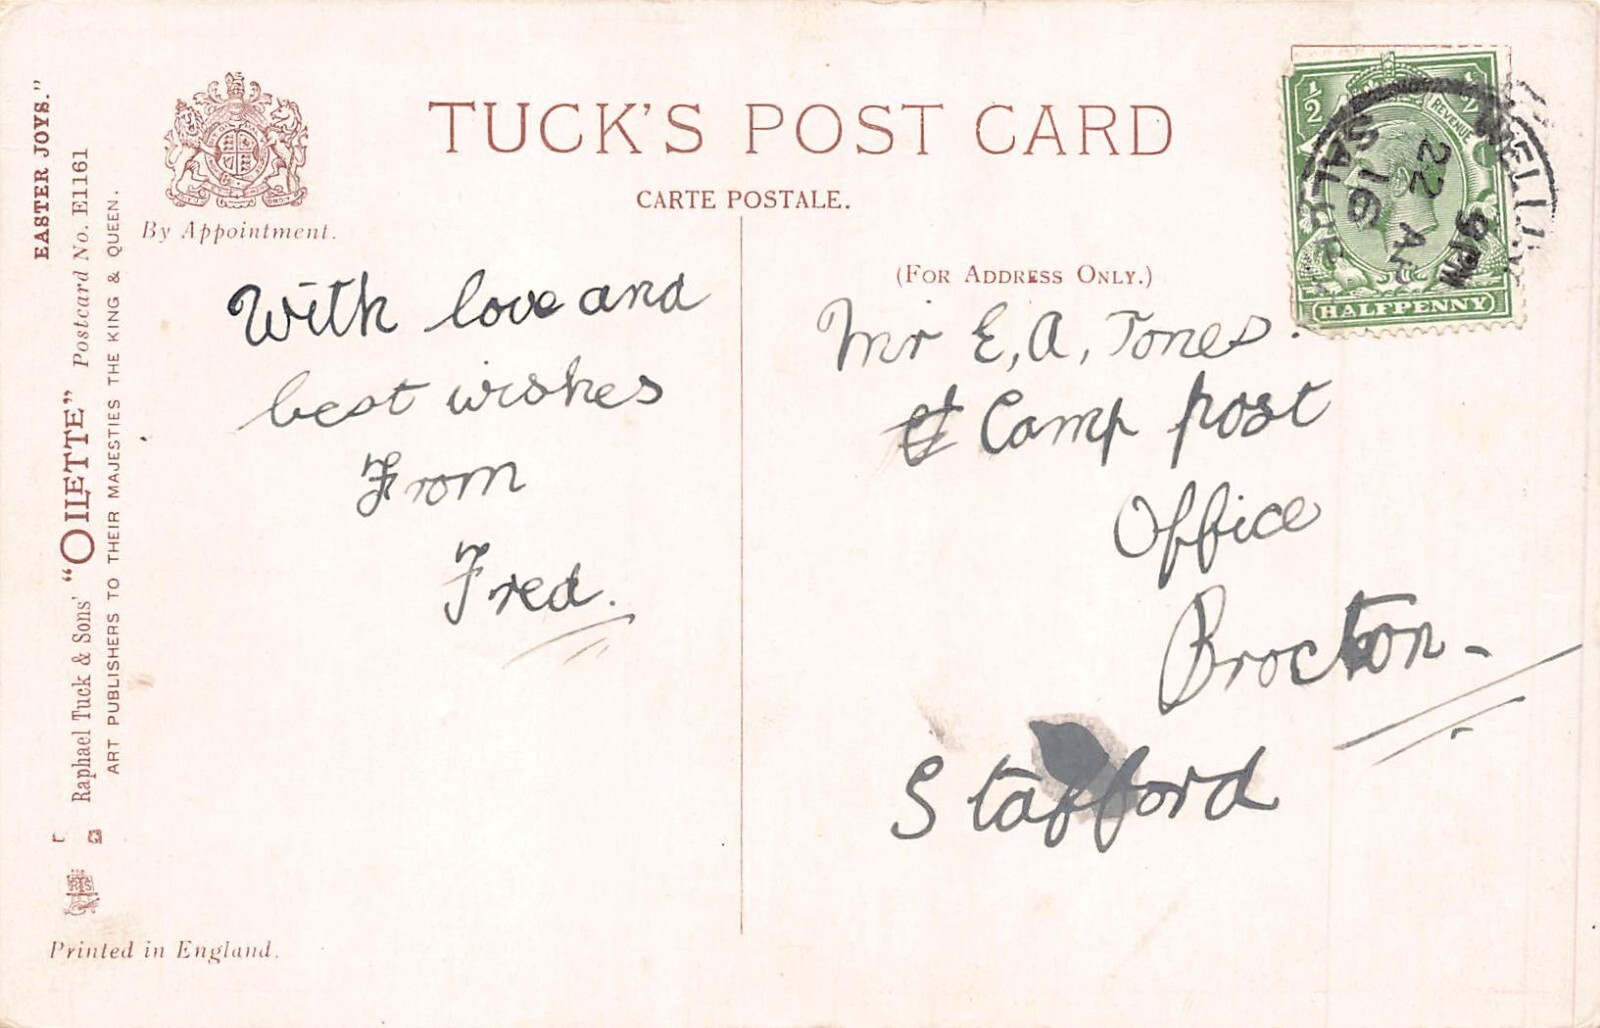 TUCK'S POST CARD
CARTE POSTALE.
By Appointment.
(FOR ADDRESS ONLY.)
EASTER JOYS."
Raphael Tuck & Sons' "OILETTE" Postcard No. E1161
ART PUBLISHERS TO THEIR MAJESTIES THE KING & QUEEN.
Printed in England.
With love and
best wishes
From
Fred.
Mr E, A, Jones.
Camp post
Office
Brocton -
Stafford
½ ½
REVENUE
HALFPENNY
WELLINGTON
9 PM
22 AP
16
SALOP